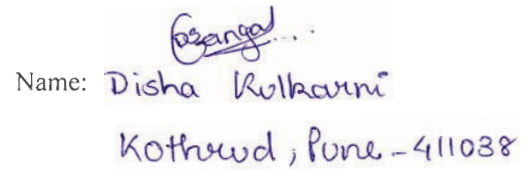 Name: Disha Kulkarni
Kothrud, Pune - 411038